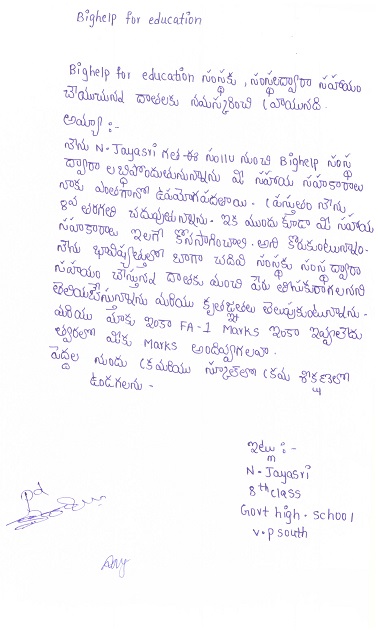 Bighelp for education
Bighelp for education సంస్థకు, సంస్థలద్వారా సహాయం
చేయుచున్న దాతలకు నమస్కరించి వ్రాయునది.
అయ్యా :-
నేను N. Jayasri గత ఈ సం॥ నుంచి Bighelp సంస్థ
ద్వారా లబ్ధిపొందుతున్నాను మీ సహాయ సహకారాలు
నాకు ఎంతగానో ఉపయోగపడలాయి. ప్రస్తుతం నేను
8వ తరగతి చదువుతున్నాను. ఇక ముందుకూడా మీ సహాయ
సహకారాలు ఇలాగే కొనసాగించాలి. అని కోరుకుంటున్నాను.
నేను భావిష్యత్తులో బాగా చదివి సంస్థకు సంస్థ ద్వారా
సహాయం చేస్తున్న దాతకు మంచి పేరు తీసుకురాగలనని
తెలియచేస్తున్నాను మరియు కృతజ్ఞతలు తెలుపుకుంటున్నాను.
మరియు మాకు ఇంకా FA-1 Marks ఇంకా ఇవ్వలేదు
త్వరలో మీకు Marks అందివ్వగలను.
పెద్దల నుందు క్రమరియు స్కూల్‌లో క్రమ శిక్షణతో
ఉండగలను -
ఇట్లు :-
N. Jayasri
8th class
Govt high. school
v.p south